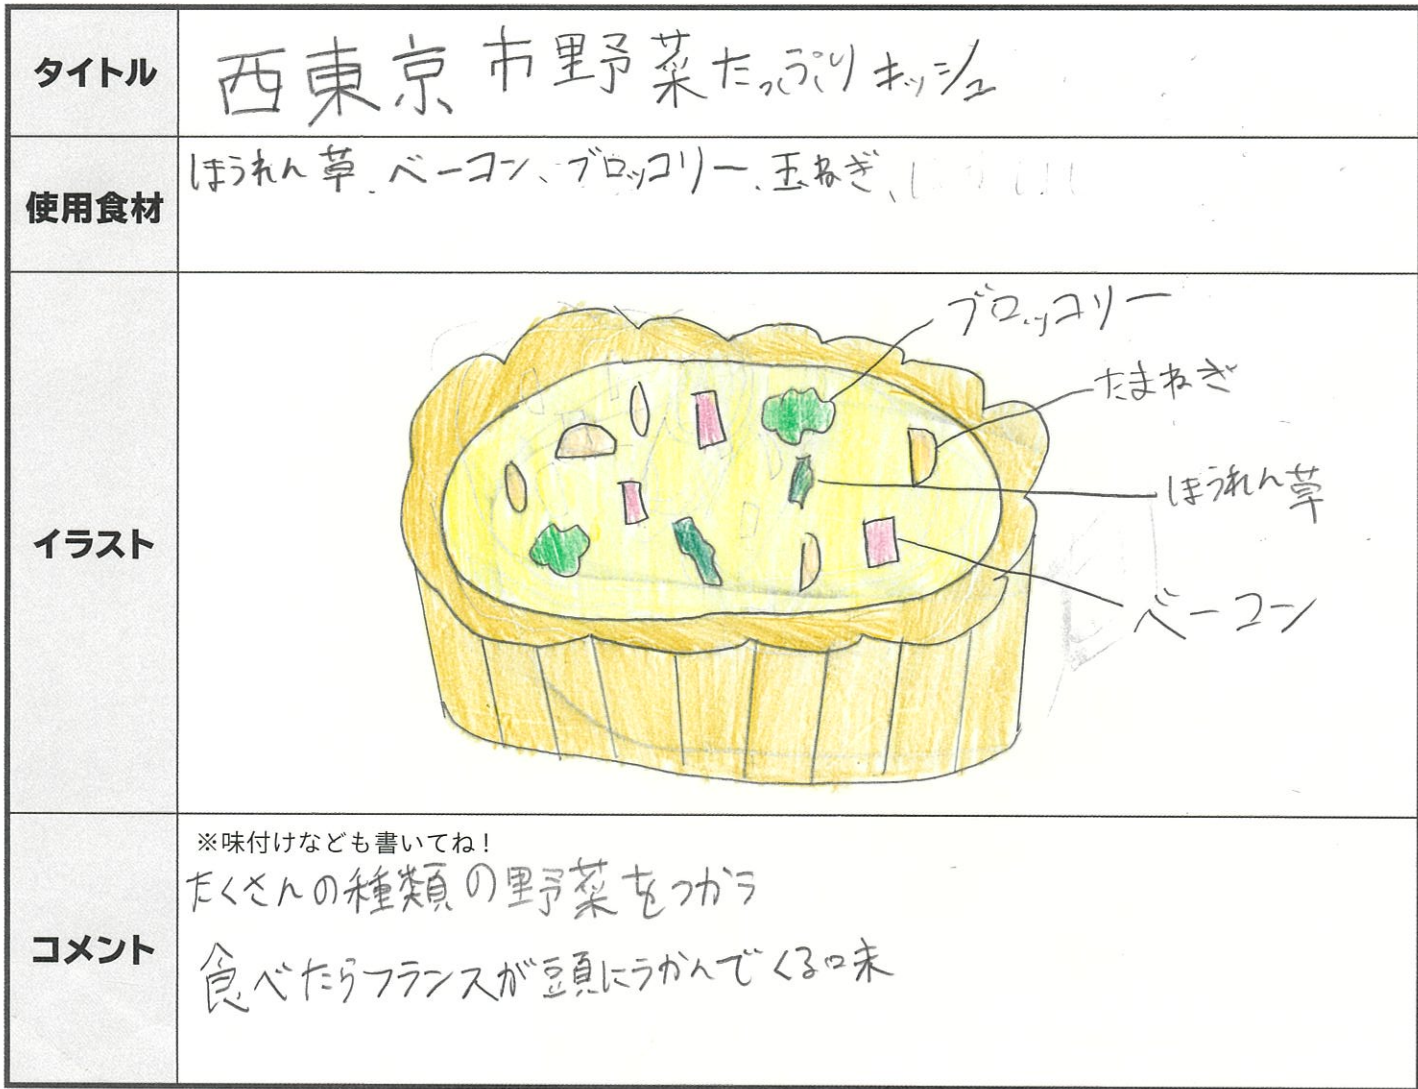 タイトル
西東京市野菜たっぷりキッシュ
使用食材
ほうれん草、ベーコン、ブロッコリー、玉ねぎ、
イラスト
ブロッコリー
たまねぎ
ほうれん草
ベーコン
コメント
※味付けなども書いてね！
たくさんの種類の野菜をつかう
食べたらフランスが頭にうかんでくる味